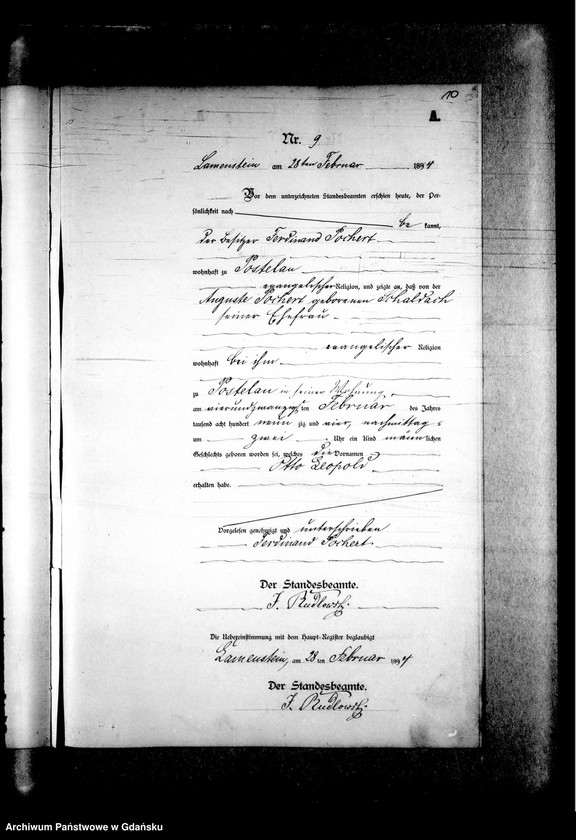 10
A.
Nr. 9
Lamenstein am 28ten Februar 1894
Vor dem unterzeichneten Standesbeamten erschien heute, der Per-
sönlichkeit nach
be kannt,
der Besitzer Ferdinand Pochert
wohnhaft zu Postelau
evangelischer Religion, und zeigte an, daß von der
Auguste Pochert geborenen Schaldach
seiner Ehefrau
evangelischer Religion
wohnhaft bei ihm
zu Postelau in seiner Wohnung
am vierundzwanzigsten Februar des Jahres
tausend acht hundert neun zig und vier, nachmittags
um zwei Uhr ein Kind männlichen
Geschlechts geboren worden sei, welches die Vornamen
Otto Leopold
erhalten habe.
Vorgelesen genehmigt und unterschrieben
Ferdinand Pochert
Der Standesbeamte.
J. Rudlowski
Die Uebereinstimmung mit dem Haupt-Register beglaubigt
Lamenstein, am 28 ten Februar 1894
Der Standesbeamte.
J. Rudlowski
Archiwum Państwowe w Gdańsku